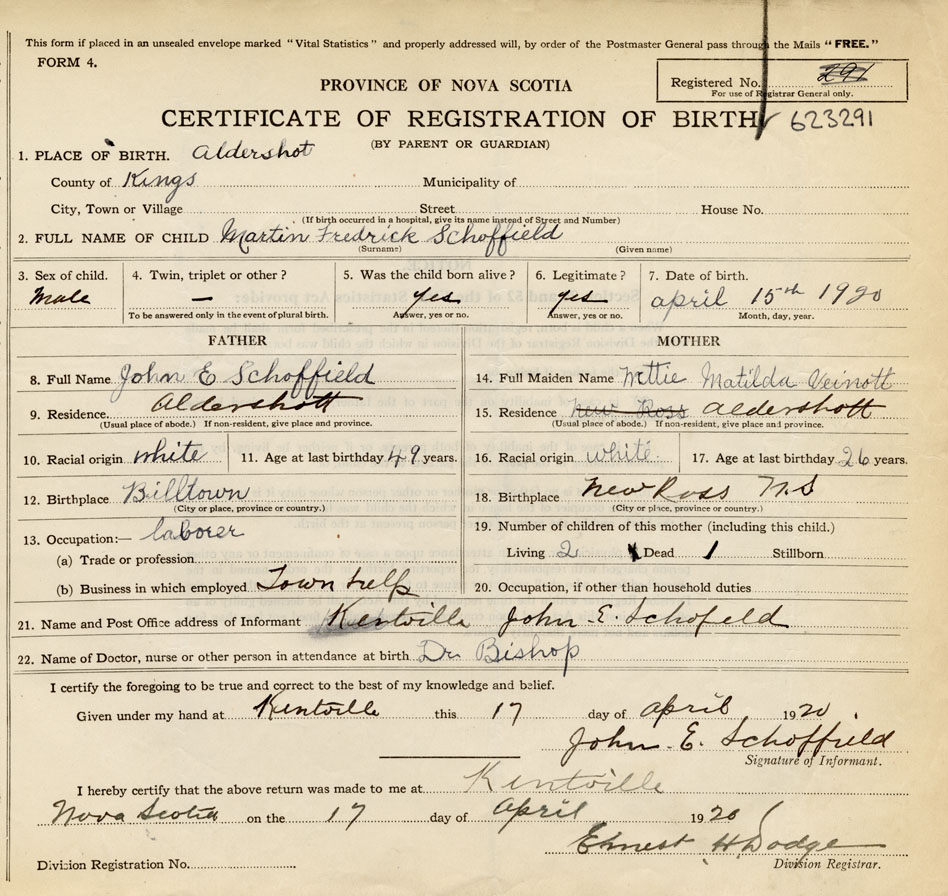 This form if placed in an unsealed envelope marked "Vital Statistics" and properly addressed will, by order of the Postmaster General pass through the Mails "FREE."
FORM 4.
Registered No. 291
For use of Registrar General only.
PROVINCE OF NOVA SCOTIA
CERTIFICATE OF REGISTRATION OF BIRTH 623291
(BY PARENT OR GUARDIAN)
1. PLACE OF BIRTH. Aldershot
County of Kings Municipality of
City, Town or Village Street House No.
(If birth occurred in a hospital, give its name instead of Street and Number)
2. FULL NAME OF CHILD Martin Fredrick Schoffield
(Surname) (Given name)
3. Sex of child. 4. Twin, triplet or other? 5. Was the child born alive? 6. Legitimate? 7. Date of birth.
Male — yes yes april 15th 1920
To be answered only in the event of plural birth. Answer, yes or no. Answer, yes or no. Month, day, year.
FATHER MOTHER
8. Full Name John E Schoffield 14. Full Maiden Name Nettie Matilda Veinott
9. Residence. Aldershott 15. Residence New Ross aldershott
(Usual place of abode.) If non-resident, give place and province. (Usual place of abode.) If non-resident, give place and province.
10. Racial origin white 11. Age at last birthday 49 years. 16. Racial origin white 17. Age at last birthday 26 years.
12. Birthplace Billtown 18. Birthplace New Ross N.S
(City or place, province or country.) (City or place, province or country.)
13. Occupation:— laborer 19. Number of children of this mother (including this child.)
(a) Trade or profession Living 2 Dead 1 Stillborn
(b) Business in which employed Town help 20. Occupation, if other than household duties
21. Name and Post Office address of Informant Kentville John E. Schofeld
22. Name of Doctor, nurse or other person in attendance at birth Dr. Bishop
I certify the foregoing to be true and correct to the best of my knowledge and belief.
Given under my hand at Kentville this 17 day of april 1920
John E. Schoffield
Signature of Informant.
I hereby certify that the above return was made to me at Kentville
Nova Scotia on the 17 day of April 1920
Ernest H Dodge
Division Registration No. Division Registrar.